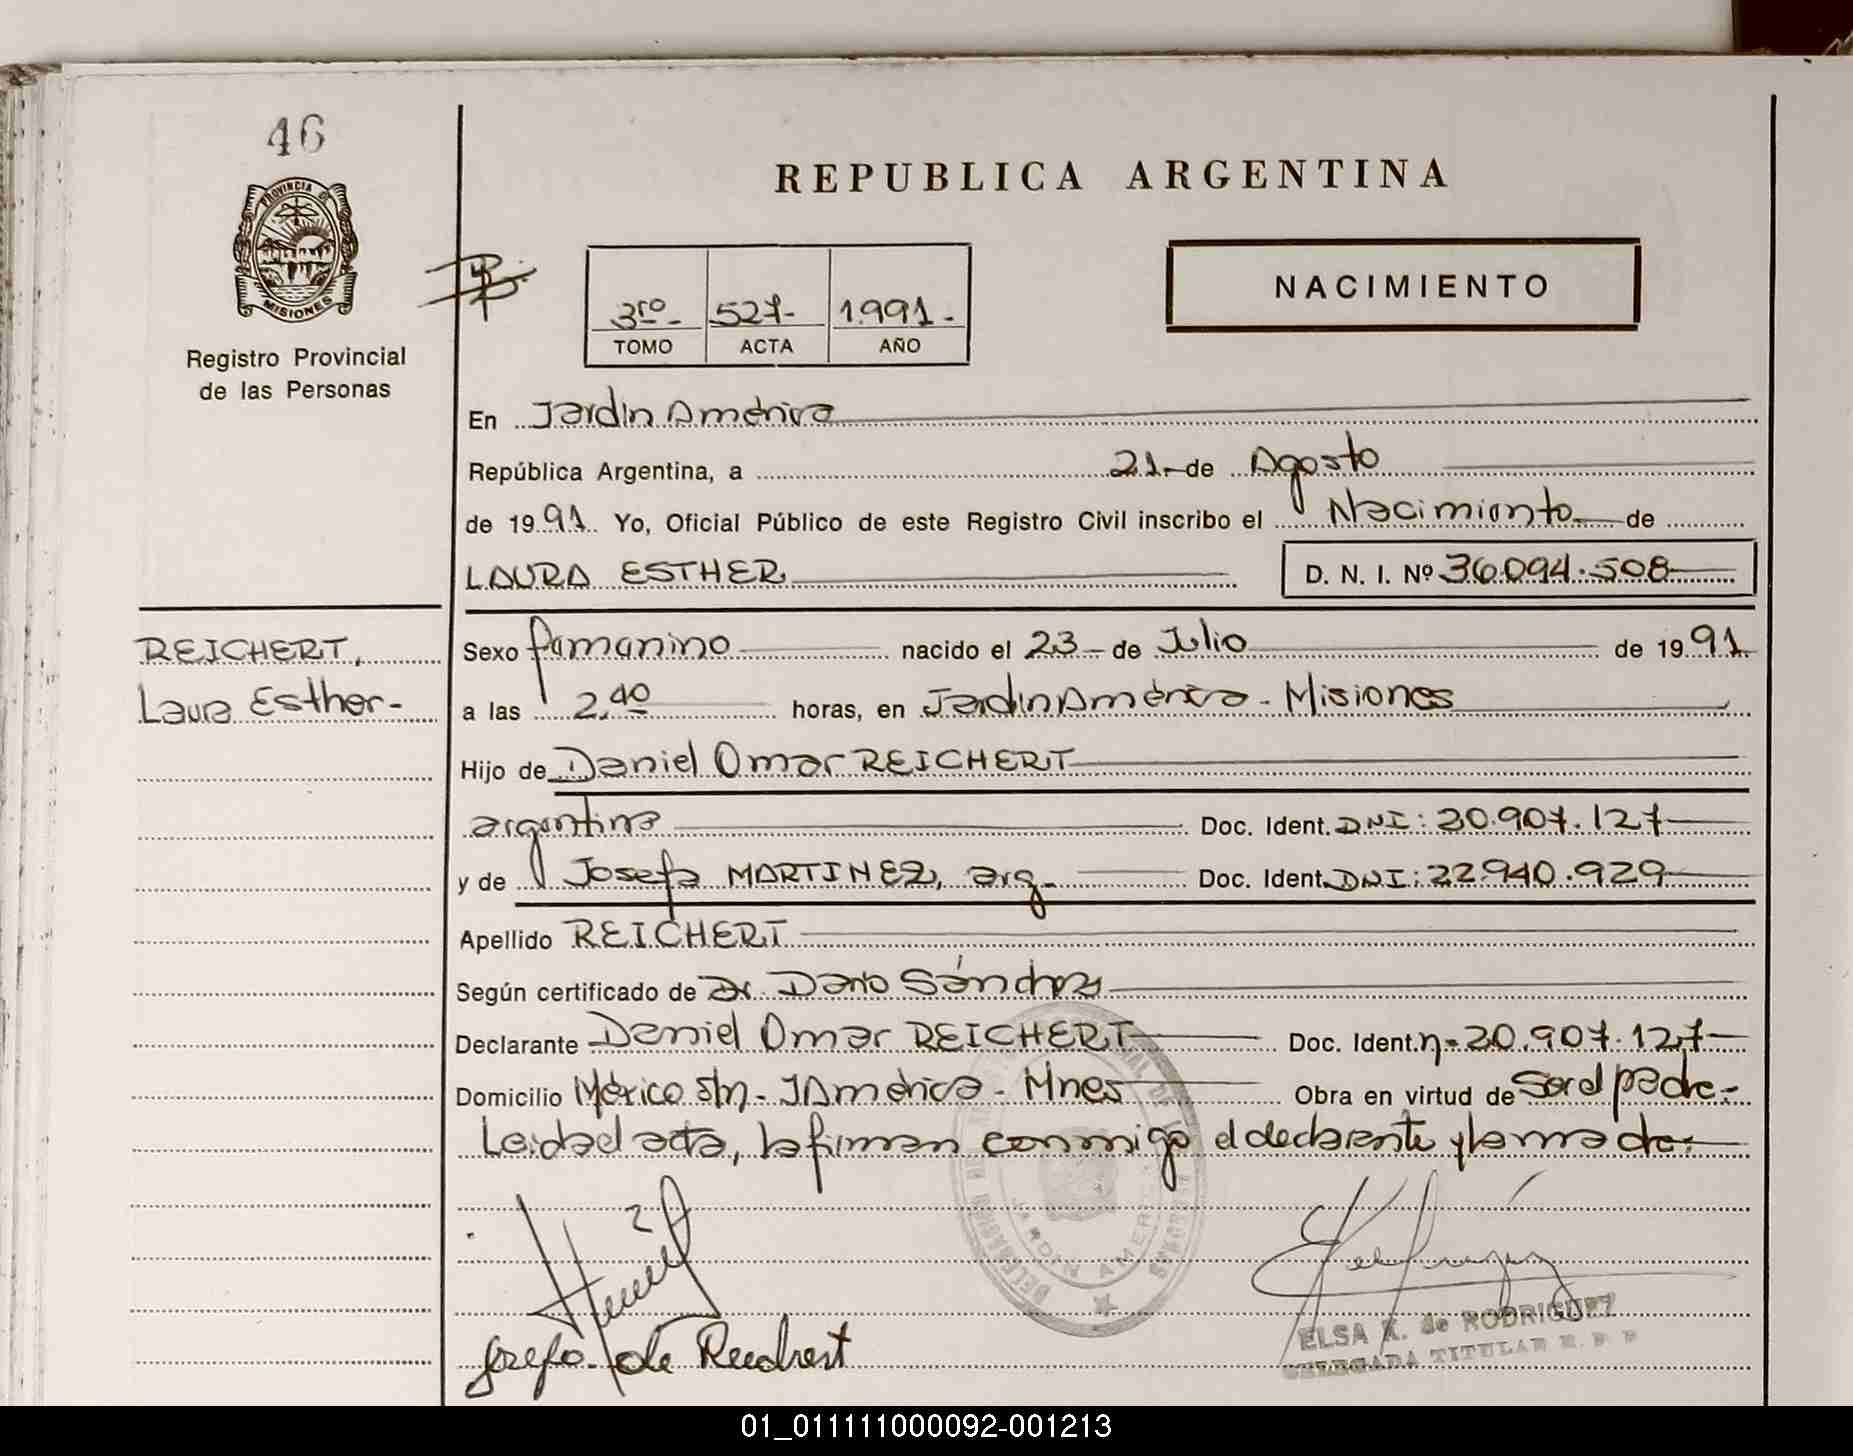 46
PROVINCIA DE
MISIONES
Registro Provincial
de las Personas
REPUBLICA ARGENTINA
NACIMIENTO
3ro- 527- 1.991.-
TOMO ACTA AÑO
En Jardin América
República Argentina, a 21- de Agosto
de 1991. Yo, Oficial Público de este Registro Civil inscribo el Nacimiento de
LAURA ESTHER D. N. I. Nº 36.094.508
REICHERT,
Laura Esther-
Sexo femenino nacido el 23- de Julio de 1991.
a las 2,40 horas, en Jardin América - Misiones
Hijo de Daniel Omar REICHERT
argentina Doc. Ident. DNI: 20.907.127
y de Josefa MARTINEZ, arg. Doc. Ident. DNI: 22.940.929
Apellido REICHERT
Según certificado de Dr. Dario Sánchez
Declarante Daniel Omar REICHERT Doc. Ident. n- 20.907.127
Domicilio México s/n- J América - Mnes Obra en virtud de Ser el padre.-
Leida el acta, la firman conmigo el declarante y la madre.-
JARDIN AMERICA
Josefa de Reichert
ELSA K. de RODRIGUEZ
DELEGADA TITULAR R. P. P
01_011111000092-001213